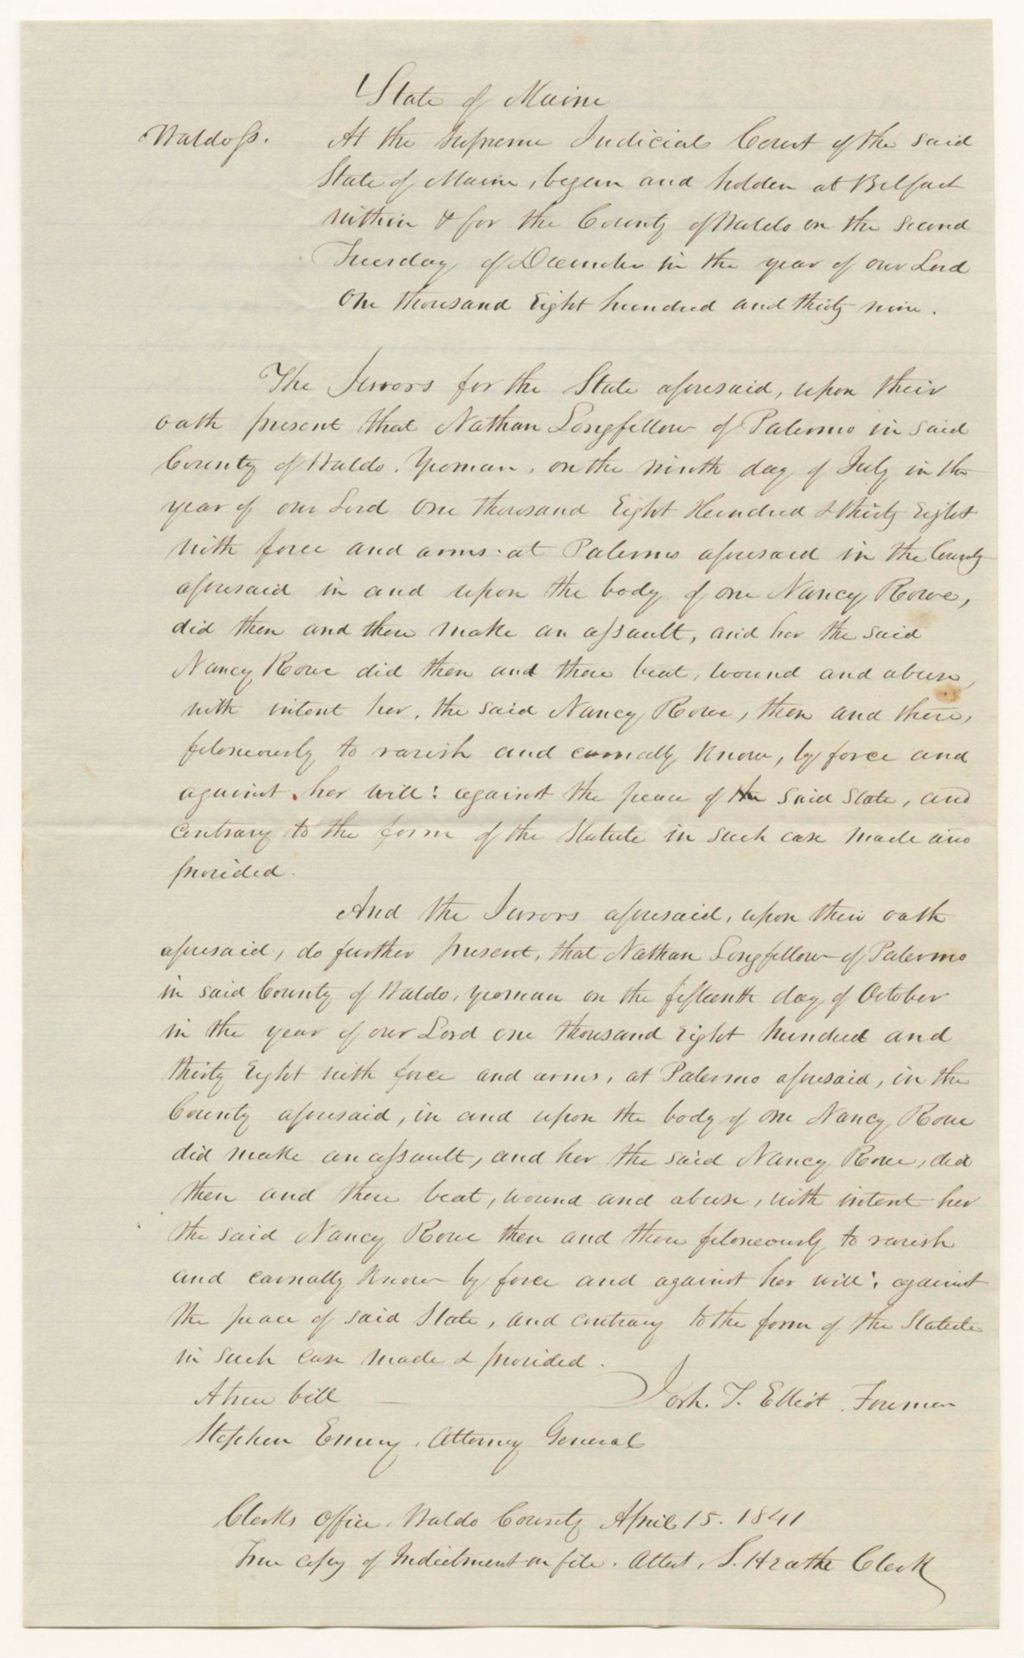 State of Maine
Waldo ss. At the Supreme Judicial Court of the said
State of Maine, begun and holden at Belfast
within & for the County of Waldo on the second
Tuesday of December in the year of our Lord
One thousand Eight hundred and thirty nine.
The Jurors for the State aforesaid, upon their
oath present that Nathan Longfellow of Palermo in said
County of Waldo, Yeoman, on the ninth day of July in the
year of our Lord One thousand Eight Hundred & thirty Eight
with force and arms at Palermo aforesaid in the County
aforesaid in and upon the body of one Nancy Rowe,
did then and there make an assault, and her the said
Nancy Rowe did then and there beat, wound and abuse,
with intent her, the said Nancy Rowe, then and there,
feloneously to ravish and carnally know, by force and
against her will: against the peace of the said State, and
contrary to the form of the Statute in such case made and
provided.
And the Jurors aforesaid, upon their oath
aforesaid, do further present, that Nathan Longfellow of Palermo
in said County of Waldo, yeoman on the fifteenth day of October
in the year of our Lord one thousand eight hundred and
thirty Eight with force and arms, at Palermo aforesaid, in the
County aforesaid, in and upon the body of one Nancy Rowe
did make an assault, and her the said Nancy Rowe, did
then and there beat, wound and abuse, with intent her
the said Nancy Rowe then and there feloneously to ravish
and carnally know by force and against her will: against
the peace of said State, and contrary to the form of the Statute
in such case made & provided.
A true bill Josh. T. Elliot, Foreman
Stephen Emery, Attorney General
Clerks Office, Waldo County April 15. 1841
True copy of Indictment on file. Attest, Clerk